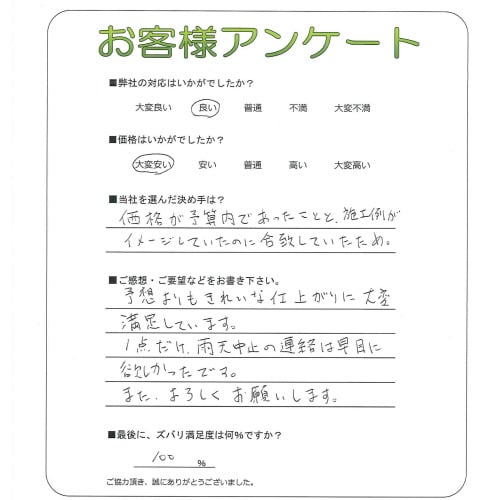 お客様アンケート
■弊社の対応はいかがでしたか？
大変良い 良い 普通 不満 大変不満
■価格はいかがでしたか？
大変安い 安い 普通 高い 大変高い
■当社を選んだ決め手は？
価格が予算内であったことと、施工例が
イメージしていたのに合致していたため。
■ご感想・ご要望などをお書き下さい。
予想よりもきれいな仕上がりに大変
満足しています。
1点だけ、雨天中止の連絡は早目に
欲しかったです。
また、よろしくお願いします。
■最後に、ズバリ満足度は何％ですか？
100 ％
ご協力頂き、誠にありがとうございました。